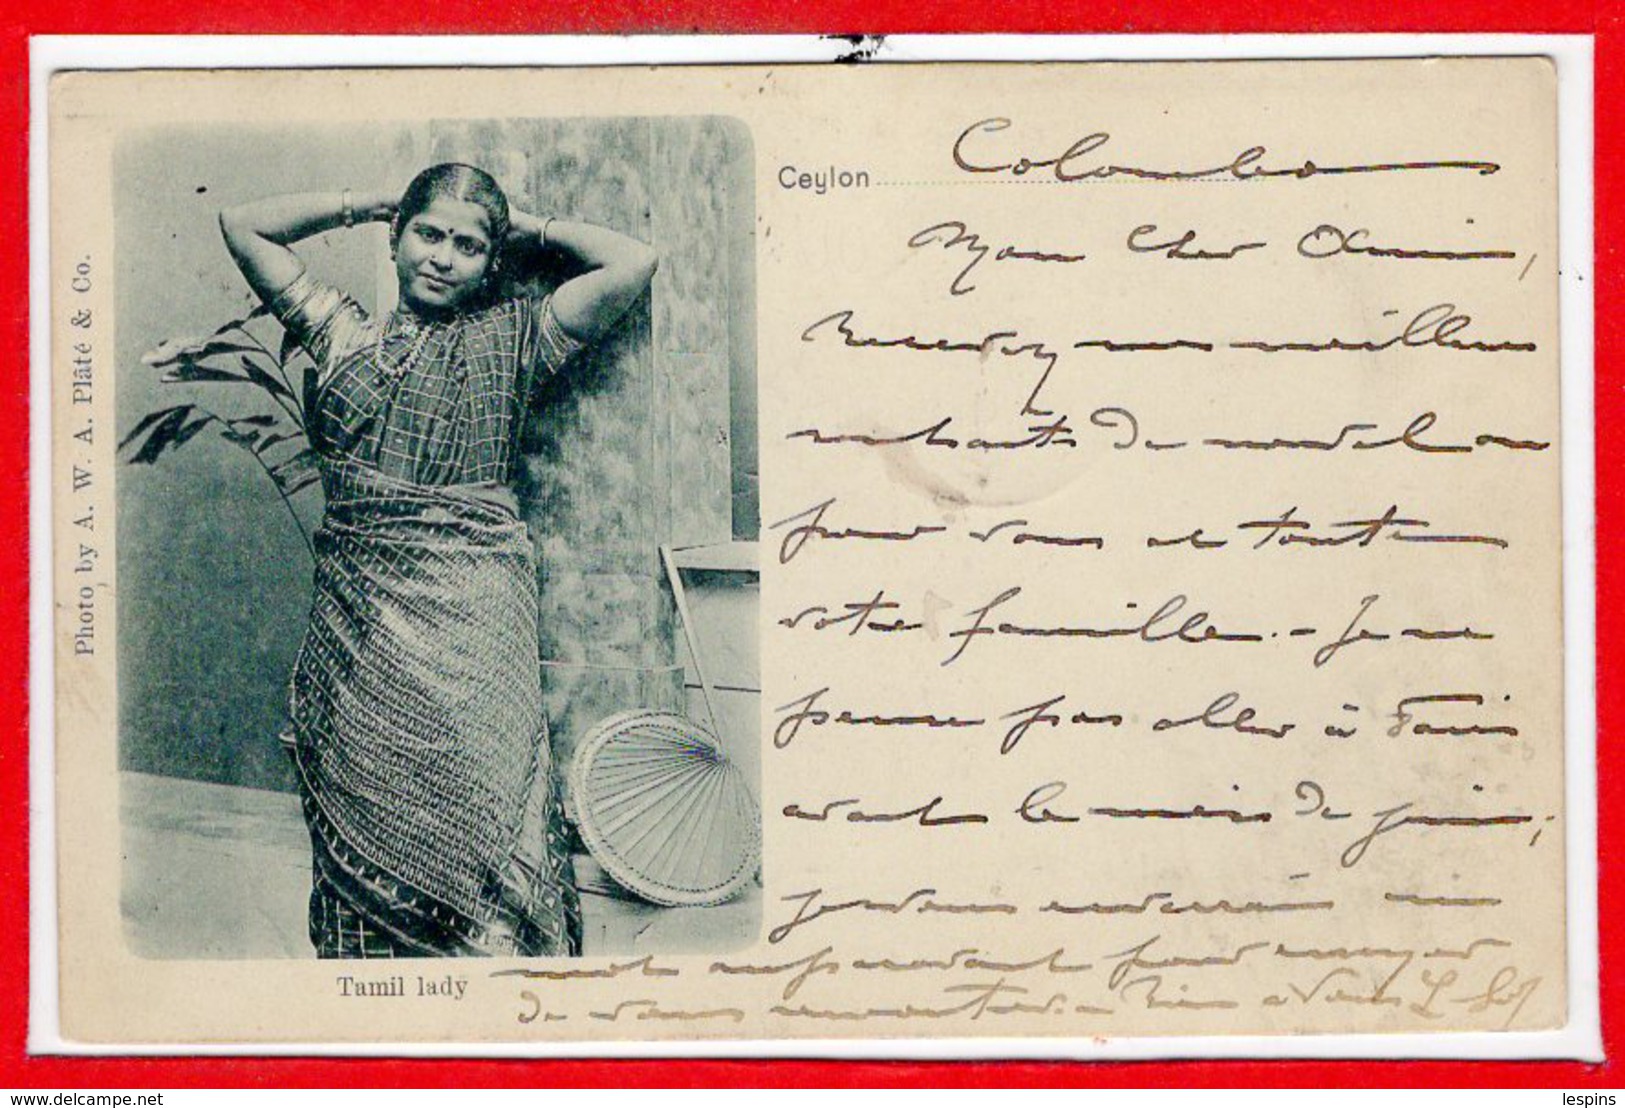 Photo by A. W. A. Plâté & Co.
Ceylon Colombo
Mon Cher Ami,
Recevez mes meilleurs
souhaits de nouvel an
pour vous et toute
votre famille. - Je ne
pense pas aller à Paris
avant le mois de juin;
je vous enverrai un
mot auparavant pour essayer
de vous rencontrer. - Bien à vous
Tamil lady
delcampe.net
lespins